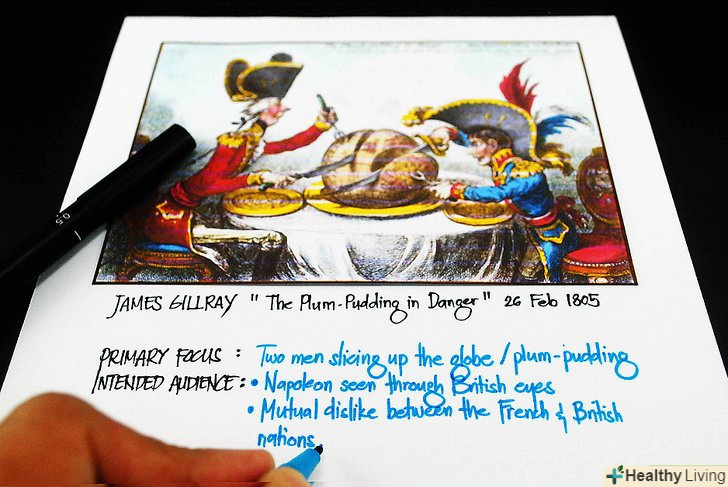 0.5
JAMES GILLRAY " The Plum-Pudding in Danger " 26 Feb 1805
PRIMARY FOCUS : Two men slicing up the globe / plum-pudding
INTENDED AUDIENCE : • Napoleon seen through British eyes
• Mutual dislike between the French & British
nations
Healthy Living